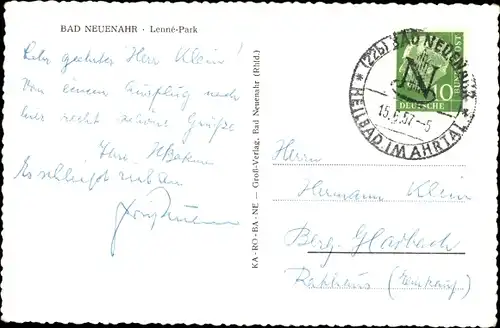 BAD NEUENAHR · Lenné-Park
Sehr geehrter Herr Klein!
Von einem Ausflug nach
hier recht schöne Grüße
Ihre
Es schließt sich an
KA-RO-BA-NE — Groß-Verlag, Bad Neuenahr (Rhld.)
(22b) BAD NEUENAHR
N
15.6.57.-5
* HEILBAD IM AHRTAL *
10
DEUTSCHE BUNDESPOST
Herrn
Hermann Klein
Berg. Gladbach
Rathaus (Einkauf)